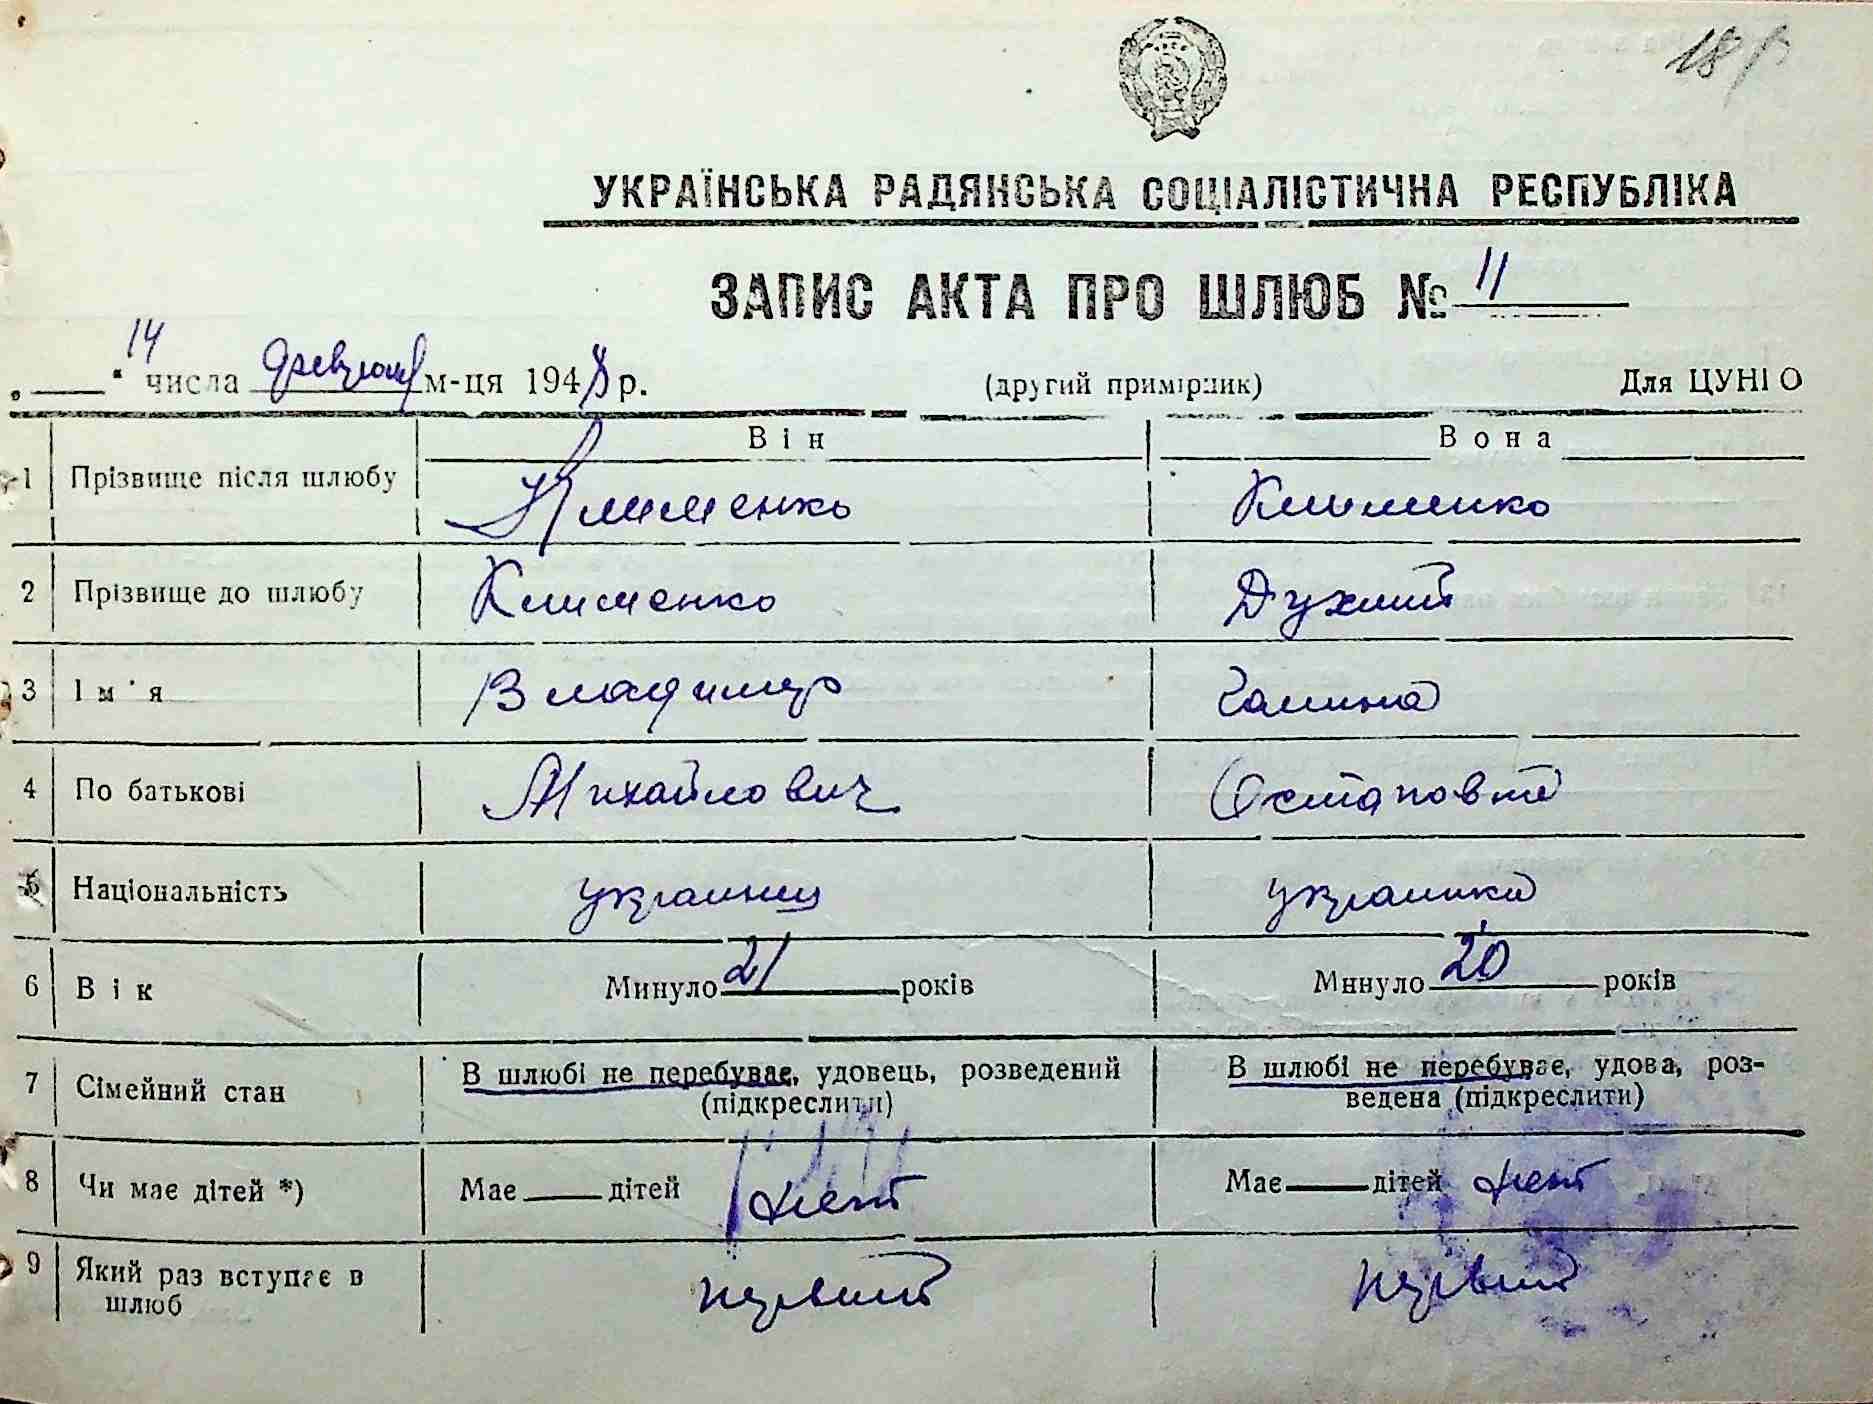 УКРАЇНСЬКА РАДЯНСЬКА СОЦІАЛІСТИЧНА РЕСПУБЛІКА
ЗАПИС АКТА ПРО ШЛЮБ № 11
„ “ 14 числа февраля м-ця 1948 р. (другий примірник) Для ЦУНІО
Він Вона
1 Прізвище після шлюбу Клименко Клименко
2 Прізвище до шлюбу Клименко Духний
3 Ім'я Владимир Галина
4 По батькові Михайлович Остаповна
5 Національність украинец украинка
6 Вік Минуло 21 років Минуло 20 років
7 Сімейний стан В шлюбі не перебуває, удовець, розведений (підкреслити) В шлюбі не перебуває, удова, роз-
ведена (підкреслити)
8 Чи має дітей *) Має дітей нет Має дітей нет
9 Який раз вступає в
шлюб первий первий